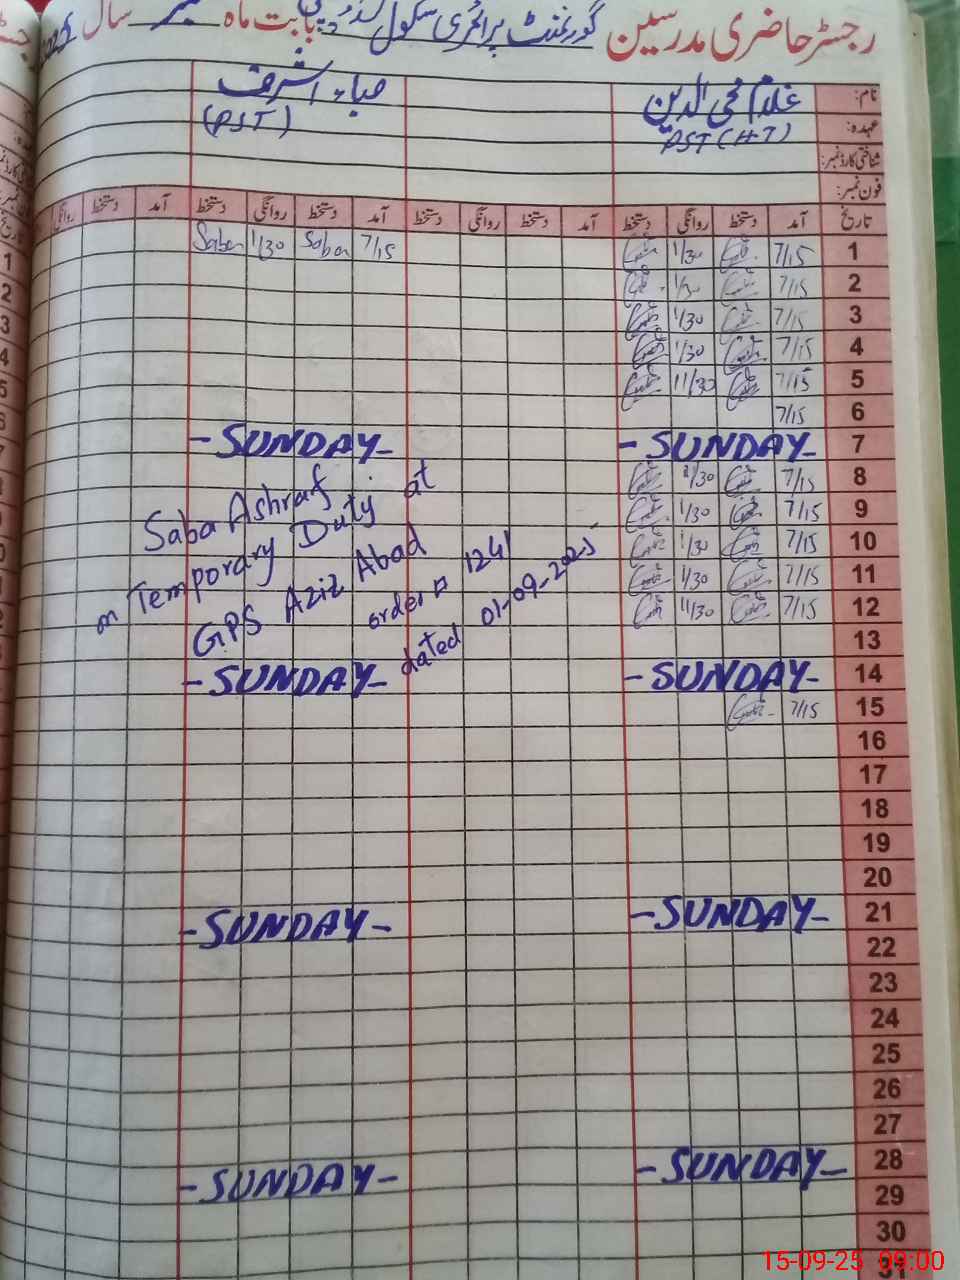 رجسٹر حاضری مدرسین گورنمنٹ پرائمری سکول بابت ماہ ستمبر سال 2025
نام: غلام محی الدین ضباء اشرف
عہدہ: PST (H-T) (PST)
شناختی کارڈ نمبر:
فون نمبر:
تاریخ آمد دستخط روانگی دستخط آمد دستخط روانگی دستخط آمد دستخط روانگی دستخط آمد دستخط روانگی
1 7/15 1/30 7/15 Saba 1/30 Saba
2 7/15 1/30
3 7/15 1/30
4 7/15 1/30
5 7/15 11/30
6 7/15
7 - SUNDAY - - SUNDAY -
8 7/15 1/30
9 7/15 1/30
10 7/15 1/30
11 7/15 1/30
12 7/15 11/30
13
Saba Ashraf
on Temporary Duty at
GPS Aziz Abad
order # 1241
dated 01-09-2025
14 - SUNDAY - - SUNDAY -
15 7/15
16
17
18
19
20
21 - SUNDAY - - SUNDAY -
22
23
24
25
26
27
28 - SUNDAY - - SUNDAY -
29
30
31
15-09-25 09:00